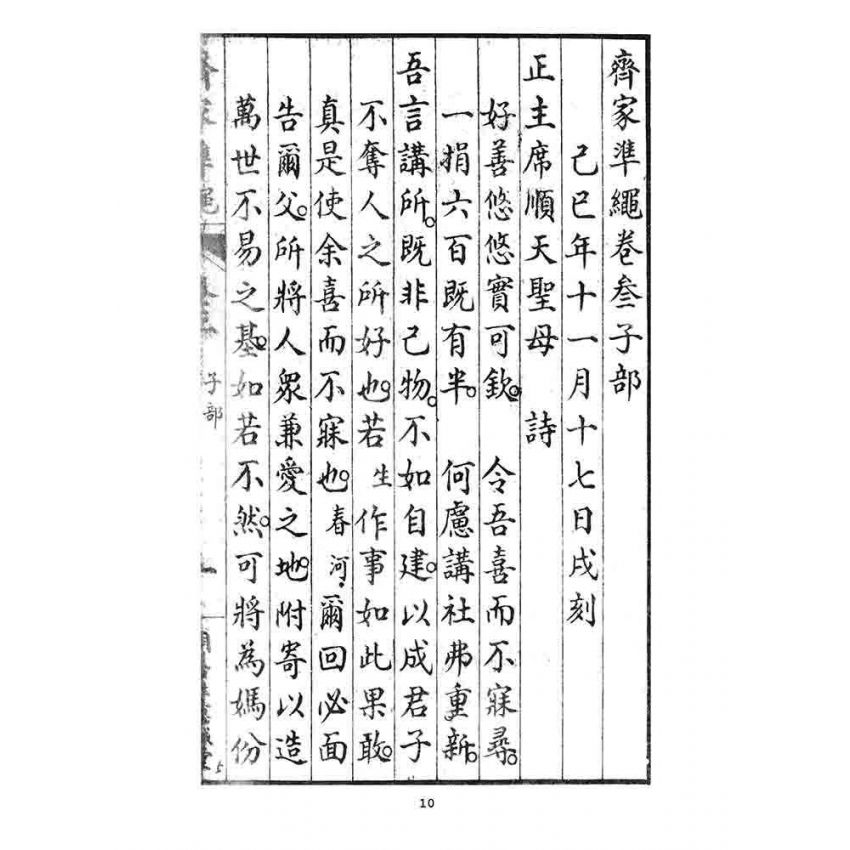 齊家準繩卷叄子部
己巳年十一月十七日戌刻
正主席順天聖母 詩
好善悠悠實可欽。 令吾喜而不寐尋。
一捐六百既有半。 何慮講社弗重新。
吾言講所。既非己物。不如自建。以成君子
不奪人之所好也。若生作事如此果敢。
真是使余喜而不寐也。春河。爾回必面
告爾父。所將人眾兼愛之地。附寄以造
萬世不易之基。如若不然。可將為媽份
齊家準繩
子部
5
10